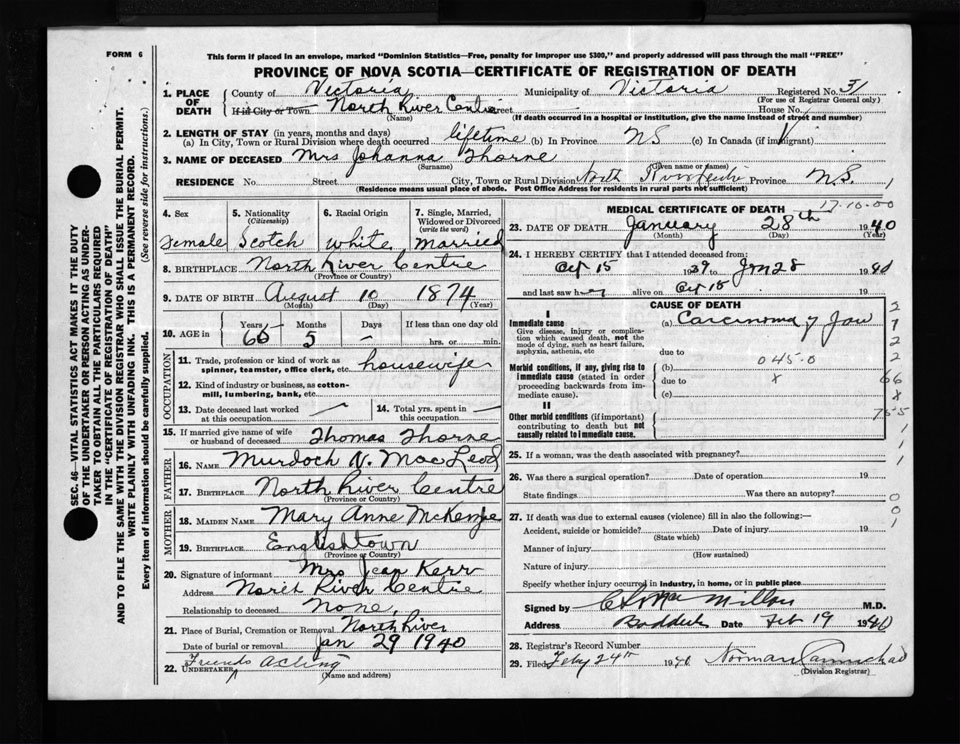 FORM 6
This form if placed in an envelope, marked "Dominion Statistics—Free, penalty for improper use $300," and properly addressed will pass through the mail "FREE"
PROVINCE OF NOVA SCOTIA—CERTIFICATE OF REGISTRATION OF DEATH
1. PLACE OF DEATH County of Victoria Municipality of Victoria Registered No. 31
(For use of Registrar General only)
If in City or Town North River Centre Street House No.
(Name) (If death occurred in a hospital or institution, give the name instead of street and number)
2. LENGTH OF STAY (in years, months and days)
(a) In City, Town or Rural Division where death occurred lifetime (b) In Province NS (c) In Canada (if immigrant)
3. NAME OF DECEASED Mrs Johanna Thorne
(Surname) (Given name or names)
RESIDENCE No. Street City, Town or Rural Division North River Centre Province N.S.
(Residence means usual place of abode. Post Office Address for residents in rural parts not sufficient)
4. Sex Female
5. Nationality (Citizenship) Scotch
6. Racial Origin White
7. Single, Married, Widowed or Divorced (write the word) Married
8. BIRTHPLACE North River Centre
(Province or Country)
9. DATE OF BIRTH August 10 1874
(Month) (Day) (Year)
10. AGE in Years 66 Months 5 Days – If less than one day old hrs. or min.
OCCUPATION
11. Trade, profession or kind of work as spinner, teamster, office clerk, etc. housewife
12. Kind of industry or business, as cotton-mill, lumbering, bank, etc.
13. Date deceased last worked at this occupation —
14. Total yrs. spent in this occupation —
15. If married give name of wife or husband of deceased Thomas Thorne
FATHER
16. NAME Murdoch N. MacLeod
17. BIRTHPLACE North River Centre
(Province or Country)
MOTHER
18. MAIDEN NAME Mary Anne McKenzie
19. BIRTHPLACE Englishtown
(Province or Country)
20. Signature of informant Mrs Jean Kerr
Address North River Centre
Relationship to deceased None.
21. Place of Burial, Cremation or Removal North River
Date of burial or removal Jan 29 1940
22. UNDERTAKER Friends acting
(Name and address)
MEDICAL CERTIFICATE OF DEATH 17-10-00
23. DATE OF DEATH January 28th 1940
(Month) (Day) (Year)
24. I HEREBY CERTIFY that I attended deceased from:
Oct 15 1939 to Jan 28 1940
and last saw her alive on Oct 15 19
CAUSE OF DEATH
I
Immediate cause
Give disease, injury or complication which caused death, not the mode of dying, such as heart failure, asphyxia, asthenia, etc
(a) Carcinoma of Jaw
due to
Morbid conditions, if any, giving rise to immediate cause (stated in order proceeding backwards from immediate cause).
(b) 045.0
due to x
(c)
II
Other morbid conditions (if important) contributing to death but not causally related to immediate cause.
25. If a woman, was the death associated with pregnancy?
26. Was there a surgical operation? Date of operation 19
State findings Was there an autopsy?
27. If death was due to external causes (violence) fill in also the following:—
Accident, suicide or homicide? Date of injury 19
(State which)
Manner of injury
(How sustained)
Nature of injury
Specify whether injury occurred in industry, in home, or in public place
Signed by MacMillan M.D.
Address Baddeck Date Feb 19 1940
28. Registrar's Record Number
29. Filed Feby 24th 1940 Norman Carmichael
(Division Registrar)
SEC. 46—VITAL STATISTICS ACT MAKES IT THE DUTY
OF THE UNDERTAKER OR PERSON ACTING AS UNDERTAKER TO OBTAIN ALL THE PARTICULARS REQUIRED
IN THE "CERTIFICATE OF REGISTRATION OF DEATH"
AND TO FILE THE SAME WITH THE DIVISION REGISTRAR WHO SHALL ISSUE THE BURIAL PERMIT.
WRITE PLAINLY WITH UNFADING INK. THIS IS A PERMANENT RECORD.
Every item of information should be carefully supplied. (See reverse side for instructions.)